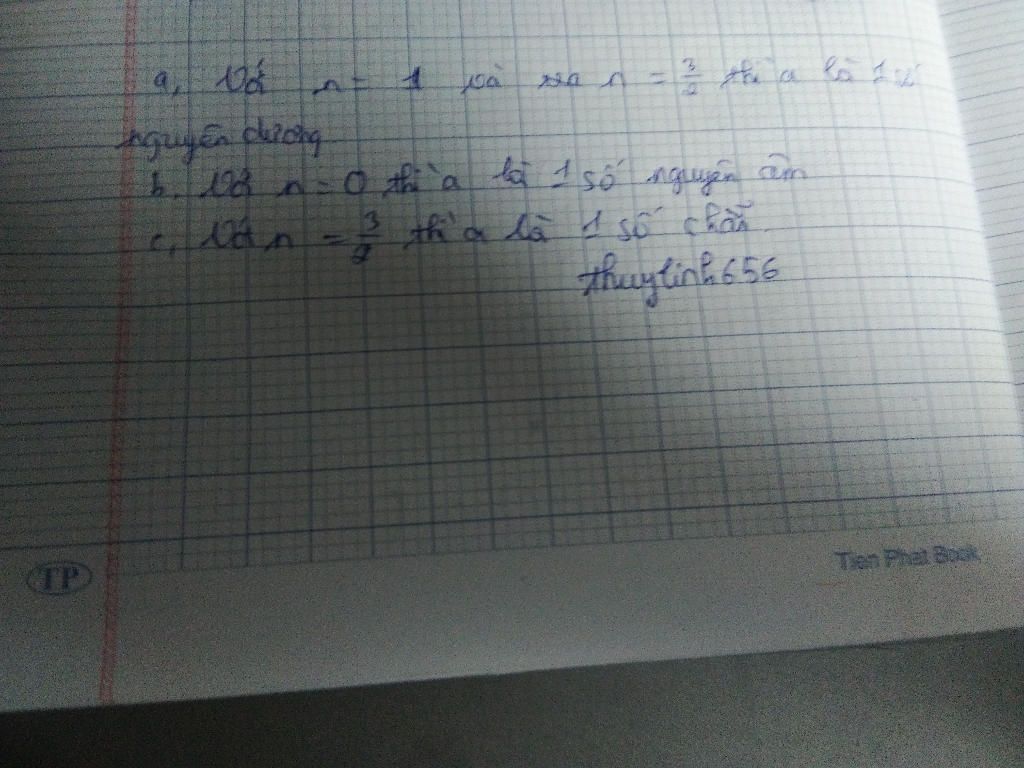 a, Với n = 1 và n = 3/2 thì a là 1 số
nguyên dương
b. Với n = 0 thì a là 1 số nguyên âm
c, Với n = 3/2 thì a là 1 số chẵn.
thuylinh656
TP
Tien Phat Book